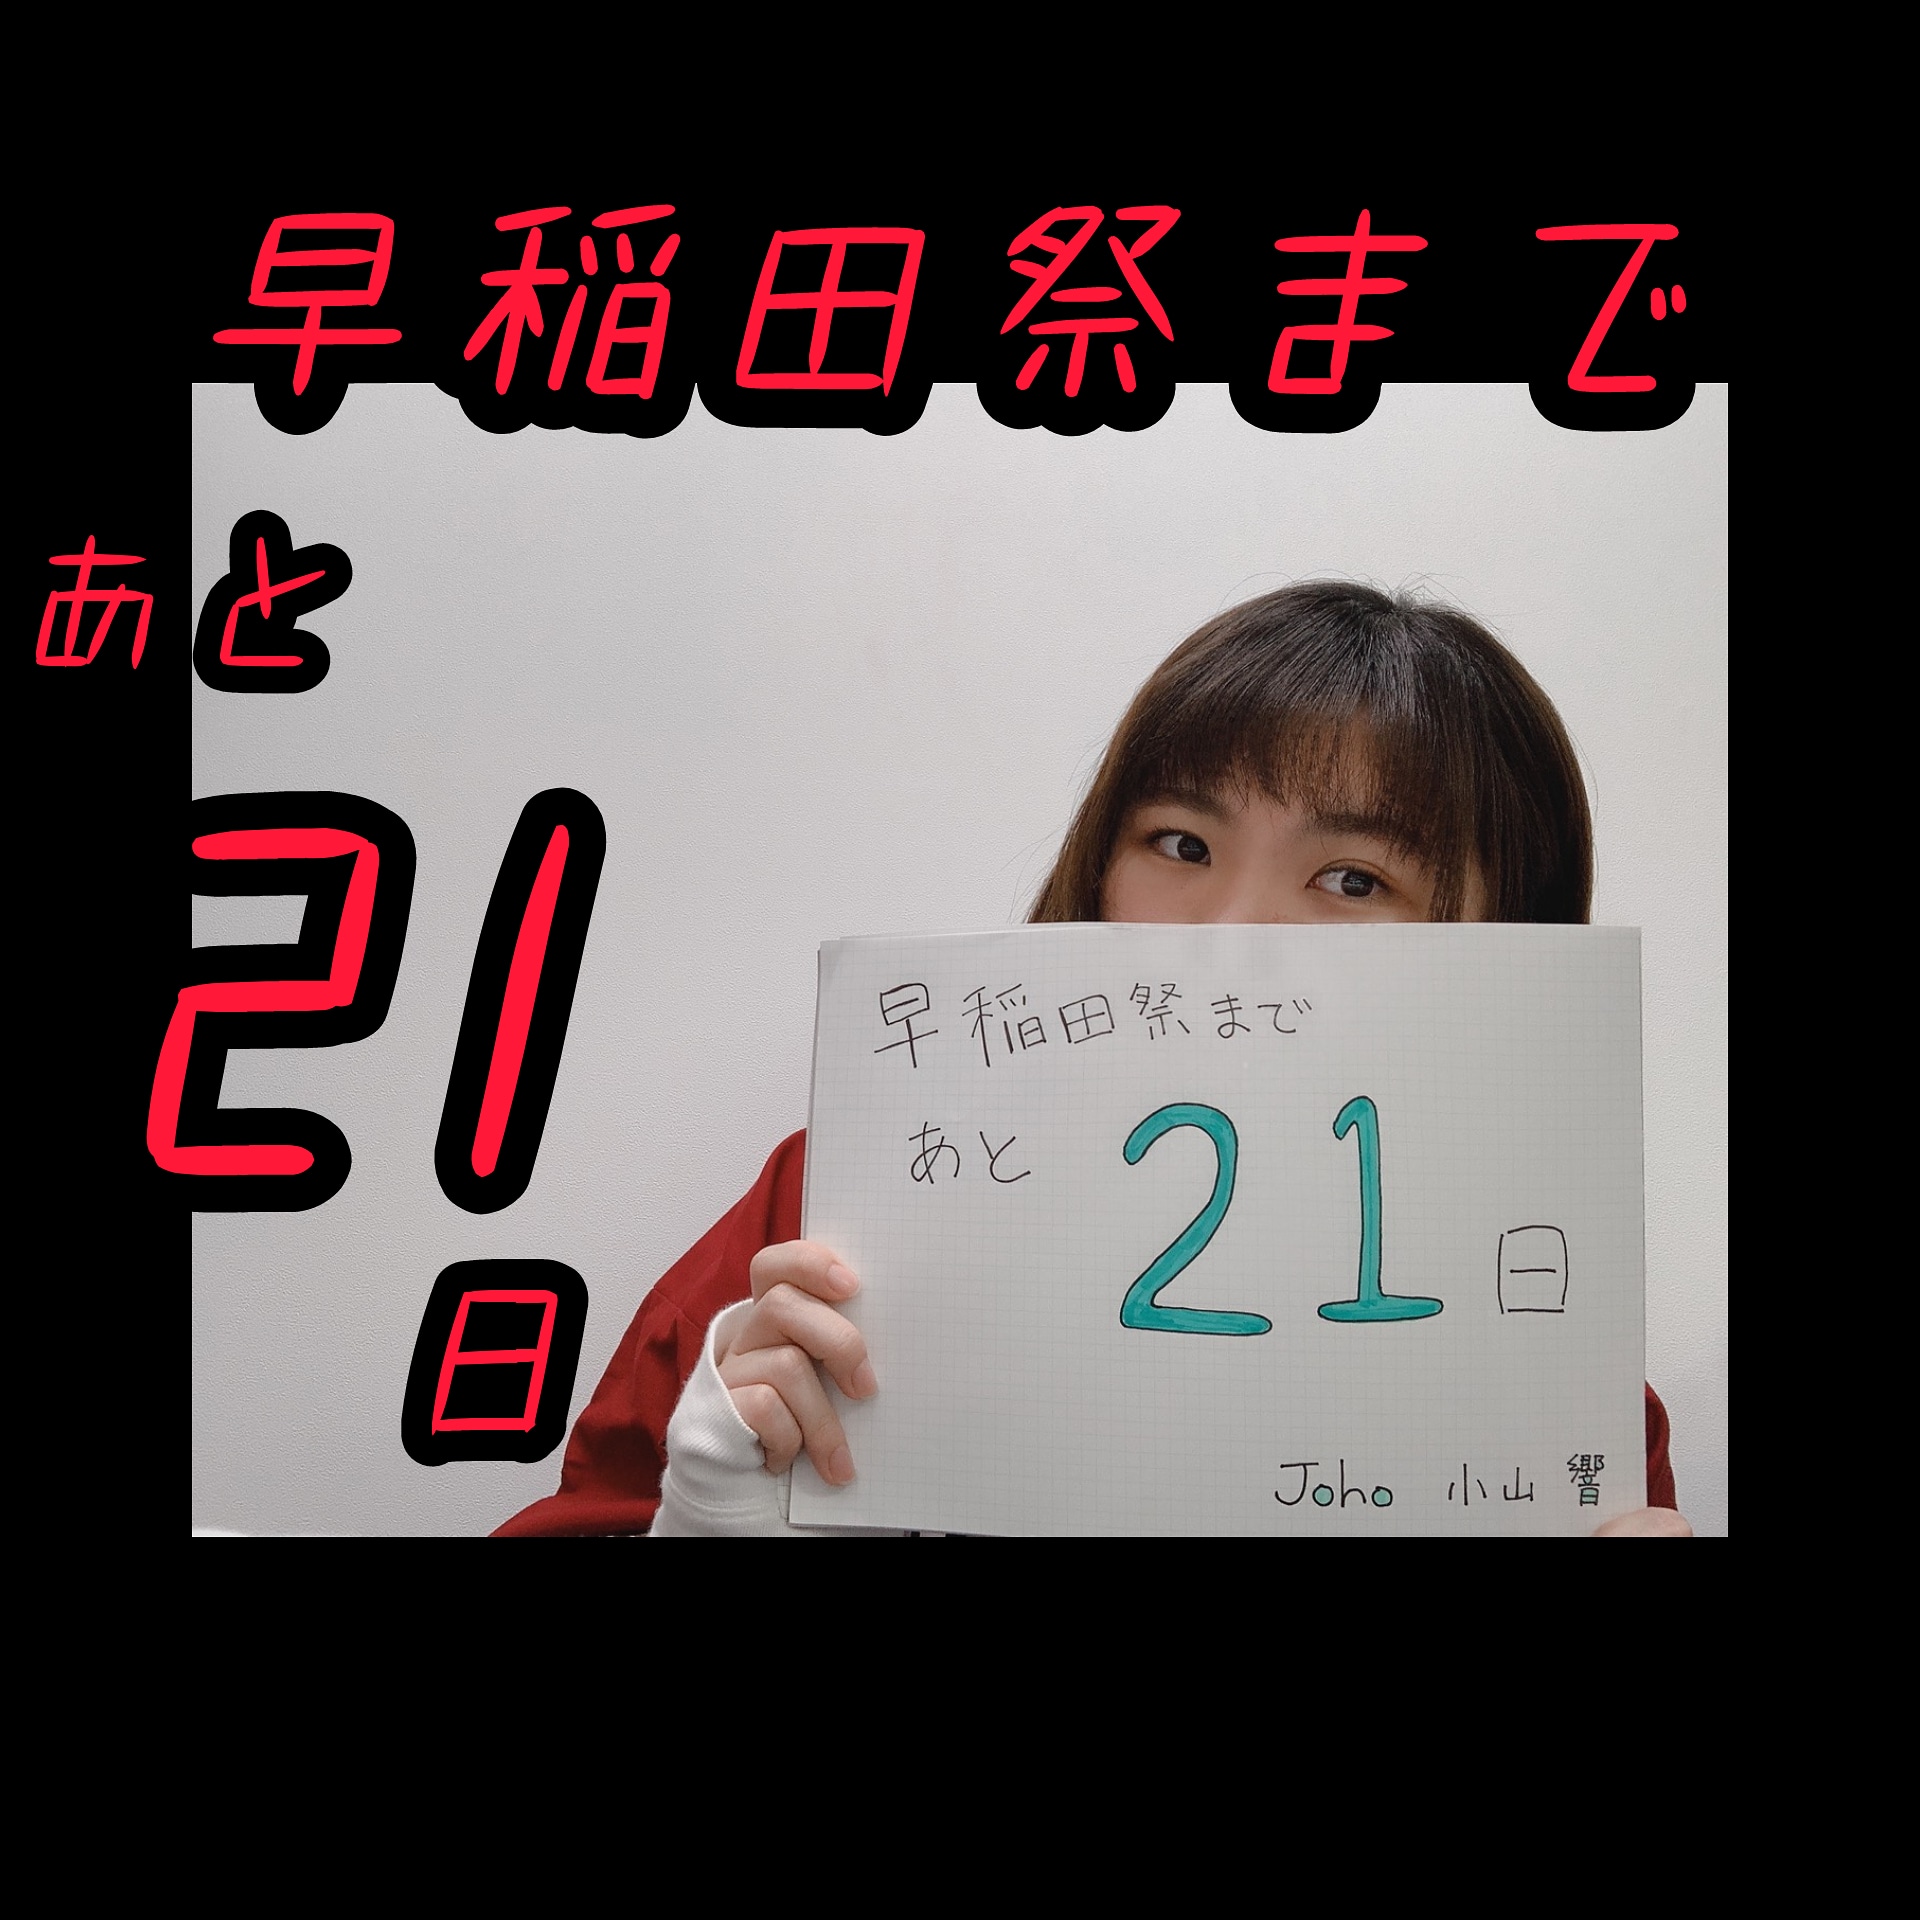 早稲田祭まで
あと
21
日
早稲田祭まで
あと 21日
Joho 小山 響